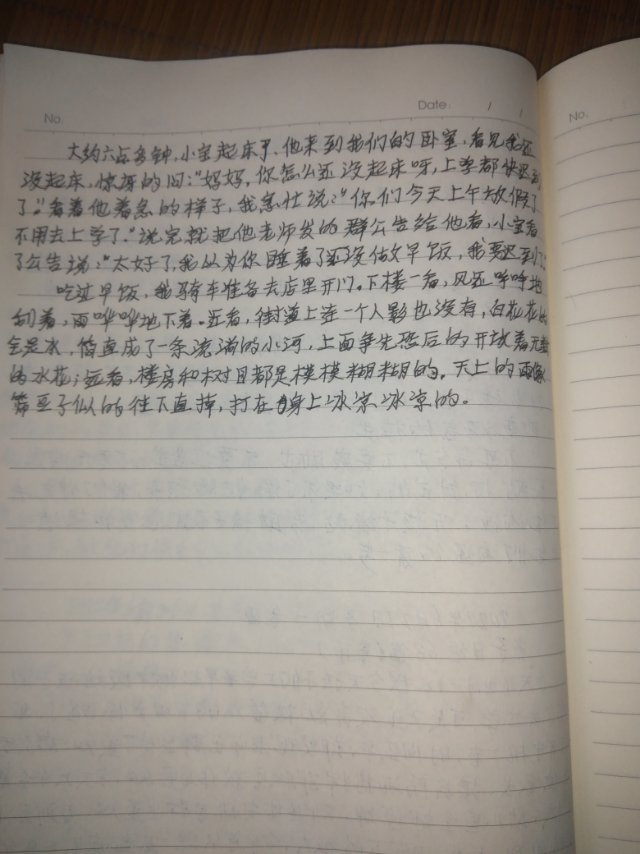 No.
Date. / /
No.
大约六点多钟,小宝起床了,他来到我们的卧室,看见我还
没起床,惊讶的问:"妈妈,你怎么还没起床呀,上学都快迟到
了。"看着他着急的样子,我急忙说:"你们今天上午放假了
不用去上学了。"说完就把他老师发的群公告给他看,小宝看
了公告说:"太好了,我以为你睡着了还没做早饭,我要迟到了
吃过早饭,我骑车准备去店里开门。下楼一看,风还呼呼地
刮着,雨哗哗地下着。近看,街道上连一个人影也没有,白花花的
全是水,简直成了一条流淌的小河,上面争先恐后的开放着无数
的水花;远看,楼房和树目都是模模糊糊的。天上的雨像
筛豆子似的往下直掉,打在身上冰凉冰凉的。